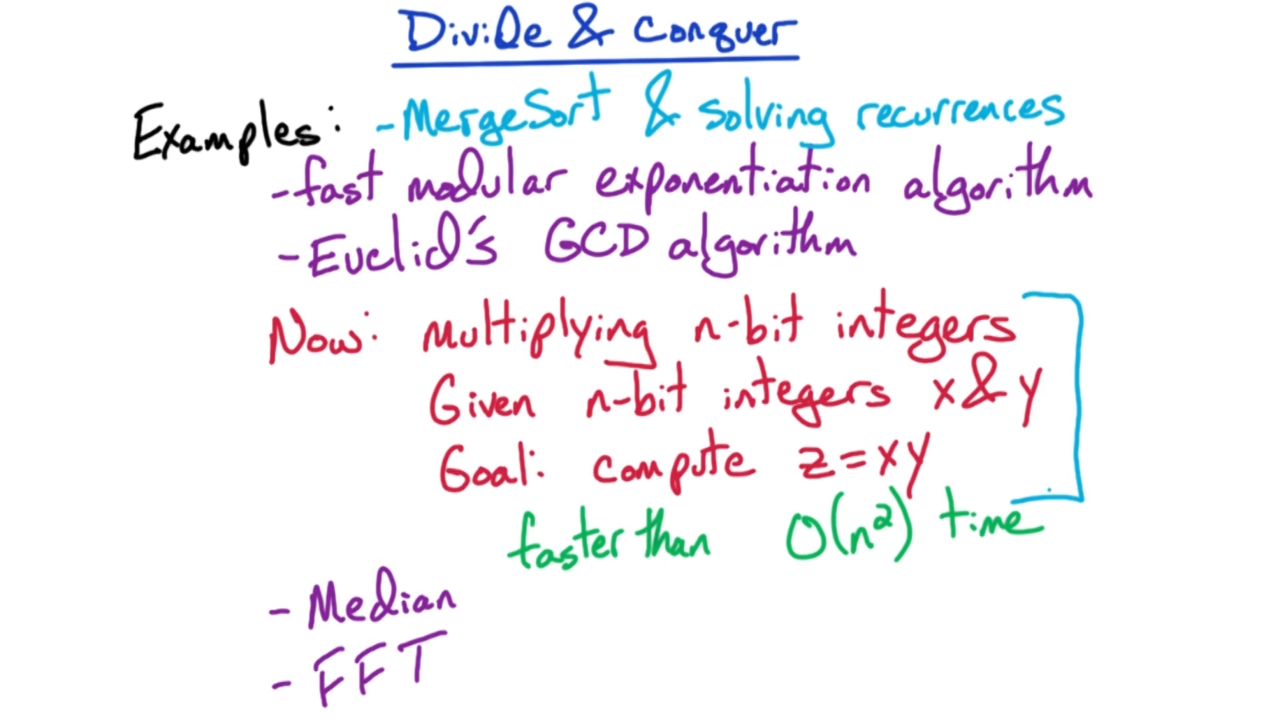 Divide & Conquer
Examples: - MergeSort & solving recurrences
- fast modular exponentiation algorithm
- Euclid's GCD algorithm
Now: multiplying n-bit integers
Given n-bit integers x & y
Goal: compute z = xy
faster than O(n²) time
- Median
- FFT